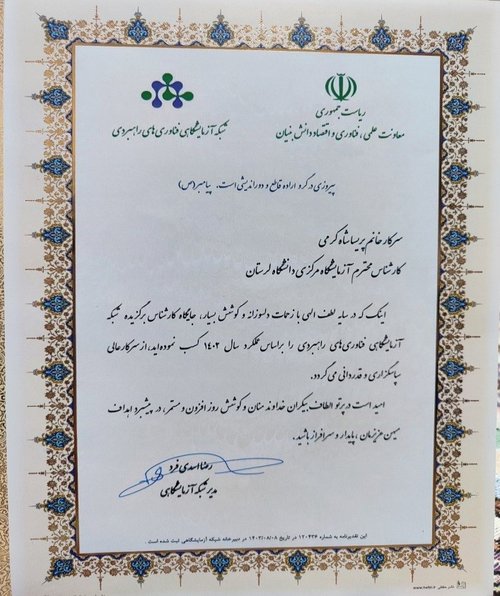 ریاست جمهوری
معاونت علمی، فناوری و اقتصاد دانش بنیان
شبکه آزمایشگاهی فناوری‌های راهبردی
پیروزی در گرو اراده قاطع و دوراندیشی است. پیامبر(ص)
سرکار خانم پریسا شاه کرمی
کارشناس محترم آزمایشگاه مرکزی دانشگاه لرستان
اینک که در سایه لطف الهی با زحمات دلسوزانه و کوشش بسیار، جایگاه کارشناس برگزیده شبکه
آزمایشگاهی فناوری‌های راهبردی را براساس عملکرد سال ۱۴۰۲ کسب نموده‌اید، از سرکارعالی
سپاسگزاری و قدردانی می گردد.
امید است در پرتو الطاف بیکران خداوند منان و کوشش روز افزون و مستمر، در پیشبرد اهداف
میهن عزیزمان، پایدار و سرافراز باشید.
رضا اسدی فرد
مدیر شبکه آزمایشگاهی
این تقدیرنامه به شماره ۱۲۰۴۳۶ در تاریخ ۱۴۰۳/۰۸/۰۸ در دبیرخانه شبکه آزمایشگاهی ثبت شده است.